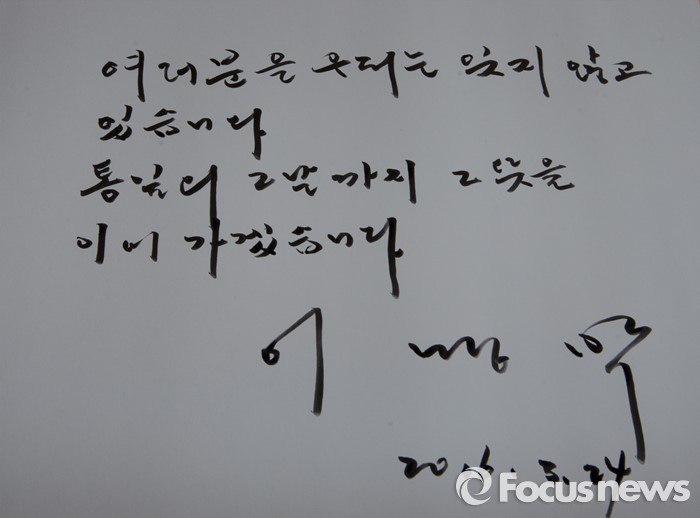 여러분을 우리는 잊지 않고
있습니다
통일의 그날까지 그 뜻을
이어 가겠습니다
이 명박
2016. 3. 24
Focusnews